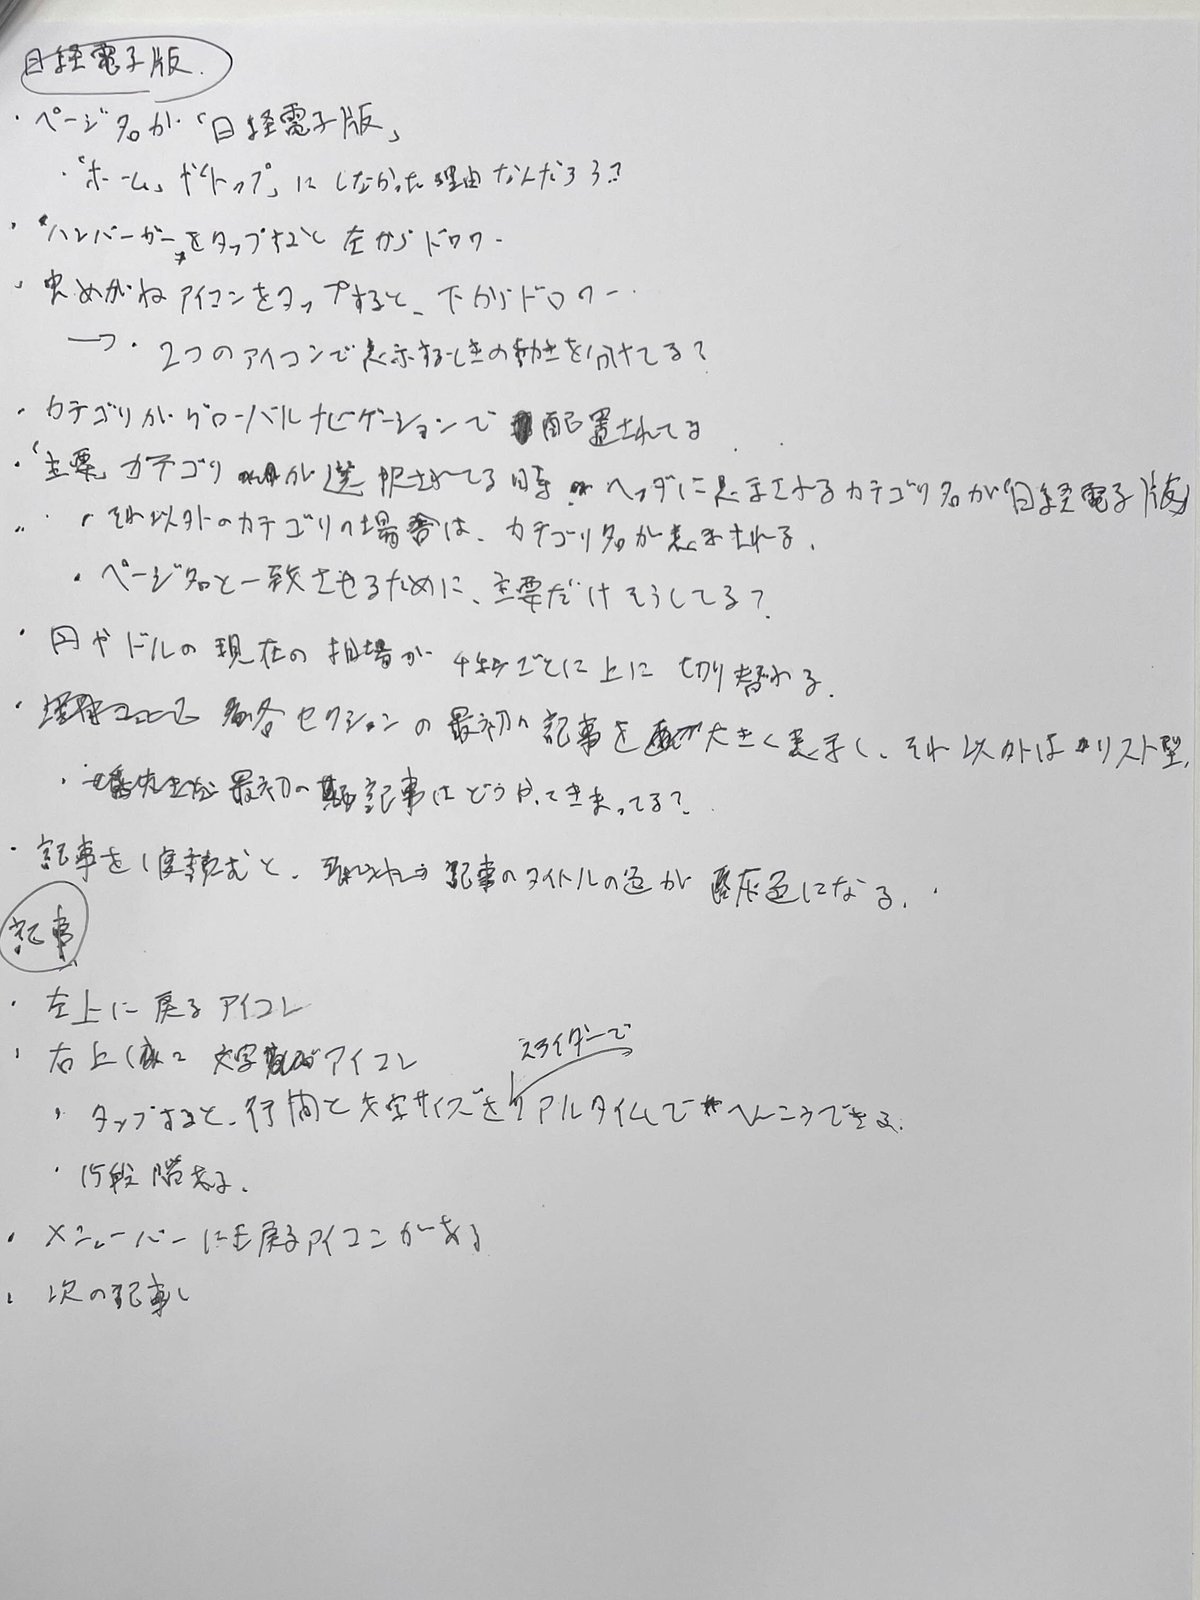 日経電子版
・ページ名が「日経電子版」
・「ホーム」や「トップ」にしなかった理由なんだろう?
・"ハンバーガー"をタップすると左からドロワー
・虫めがねアイコンをタップすると、下からドロワー
→・2つのアイコンで表示するときの動きを分けてる?
・カテゴリがグローバルナビゲーションで配置されてる
・「主要」カテゴリが選択されてる時 ヘッダに表示されるカテゴリ名が「日経電子版」
・それ以外のカテゴリの場合は、カテゴリ名が表示される.
・ページ名と一致させるために、主要だけそうしてる?
・円やドルの現在の相場が 4秒ごとに上に切り替わる.
・各セクションの最初の記事を大きく表示し、それ以外はリスト型.
・最初の記事はどうやってきまってる?
・記事を1度読むと、記事のタイトルの色が灰色になる.
記事
・左上に戻るアイコン
・右上に文字アイコン
スライダーで
・タップすると、行間と文字サイズをリアルタイムでへんこうできる.
・15段階ある.
・メニューバーにも戻るアイコンがある
・次の記事し